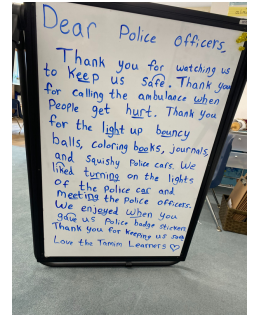 Dear Police officers,
Thank you for watching us
to keep us safe. Thank you
for calling the ambulance when
People get hurt. Thank you
for the light up bouncy
balls, coloring books, journals,
and squishy Police cars. We
liked turning on the lights
of the Police car and
meeting the Police officers.
We enjoyed when you
gave us Police badge stickers
Thank you for keeping us safe
Love the Tamim Learners ♡